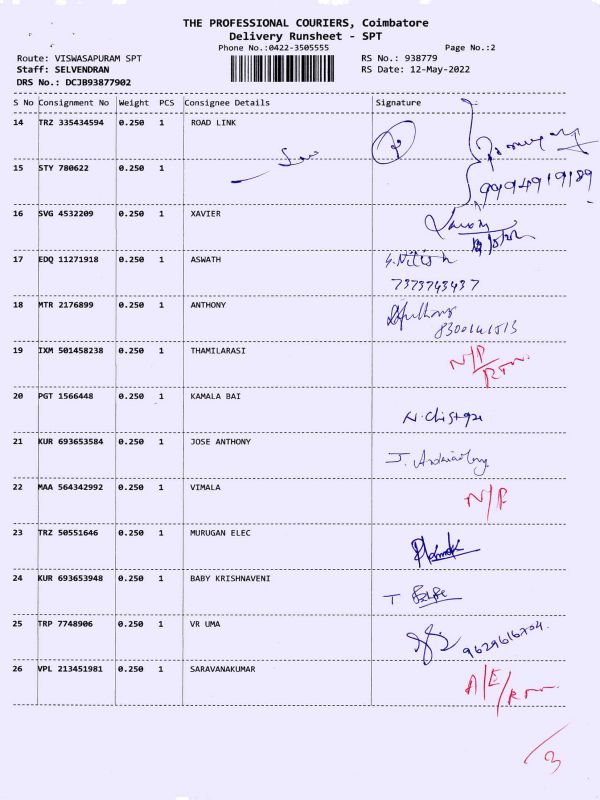 THE PROFESSIONAL COURIERS, Coimbatore
Delivery Runsheet - SPT
Phone No.:0422-3505555 Page No.:2
Route: VISWASAPURAM SPT RS No.: 938779
Staff: SELVENDRAN RS Date: 12-May-2022
DRS No.: DCJB93877902
S No Consignment No Weight PCS Consignee Details Signature
14 TRZ 335434594 0.250 1 ROAD LINK
15 STY 780622 0.250 1
9994919189
16 SVG 4532209 0.250 1 XAVIER
17 EDQ 11271918 0.250 1 ASWATH S.Nitish
7373743437
18 MTR 2176899 0.250 1 ANTHONY
8300141513
19 IXM 501458238 0.250 1 THAMILARASI N/P
RTN
20 PGT 1566448 0.250 1 KAMALA BAI
21 KUR 693653584 0.250 1 JOSE ANTHONY
22 MAA 564342992 0.250 1 VIMALA N/P
23 TRZ 50551646 0.250 1 MURUGAN ELEC
24 KUR 693653948 0.250 1 BABY KRISHNAVENI
25 TRP 7748906 0.250 1 VR UMA 9629616704.
26 VPL 213451981 0.250 1 SARAVANAKUMAR A/E/RTN
/3